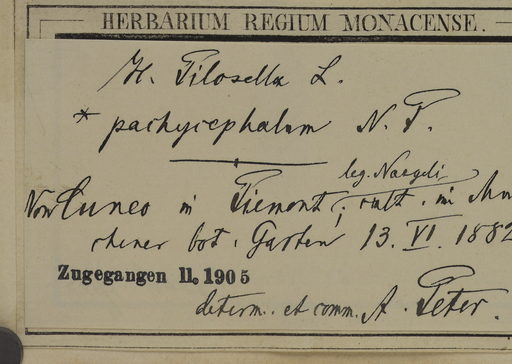 HERBARIUM REGIUM MONACENSE.
H. Pilosella L.
* pachycephalum N. P.
leg. Naegeli
Von Cuneo in Piemont; cult. im Mün
chener bot. Garten 13. VI. 1882
Zugegangen 11. 1905
determ. et comm. A. Peter.